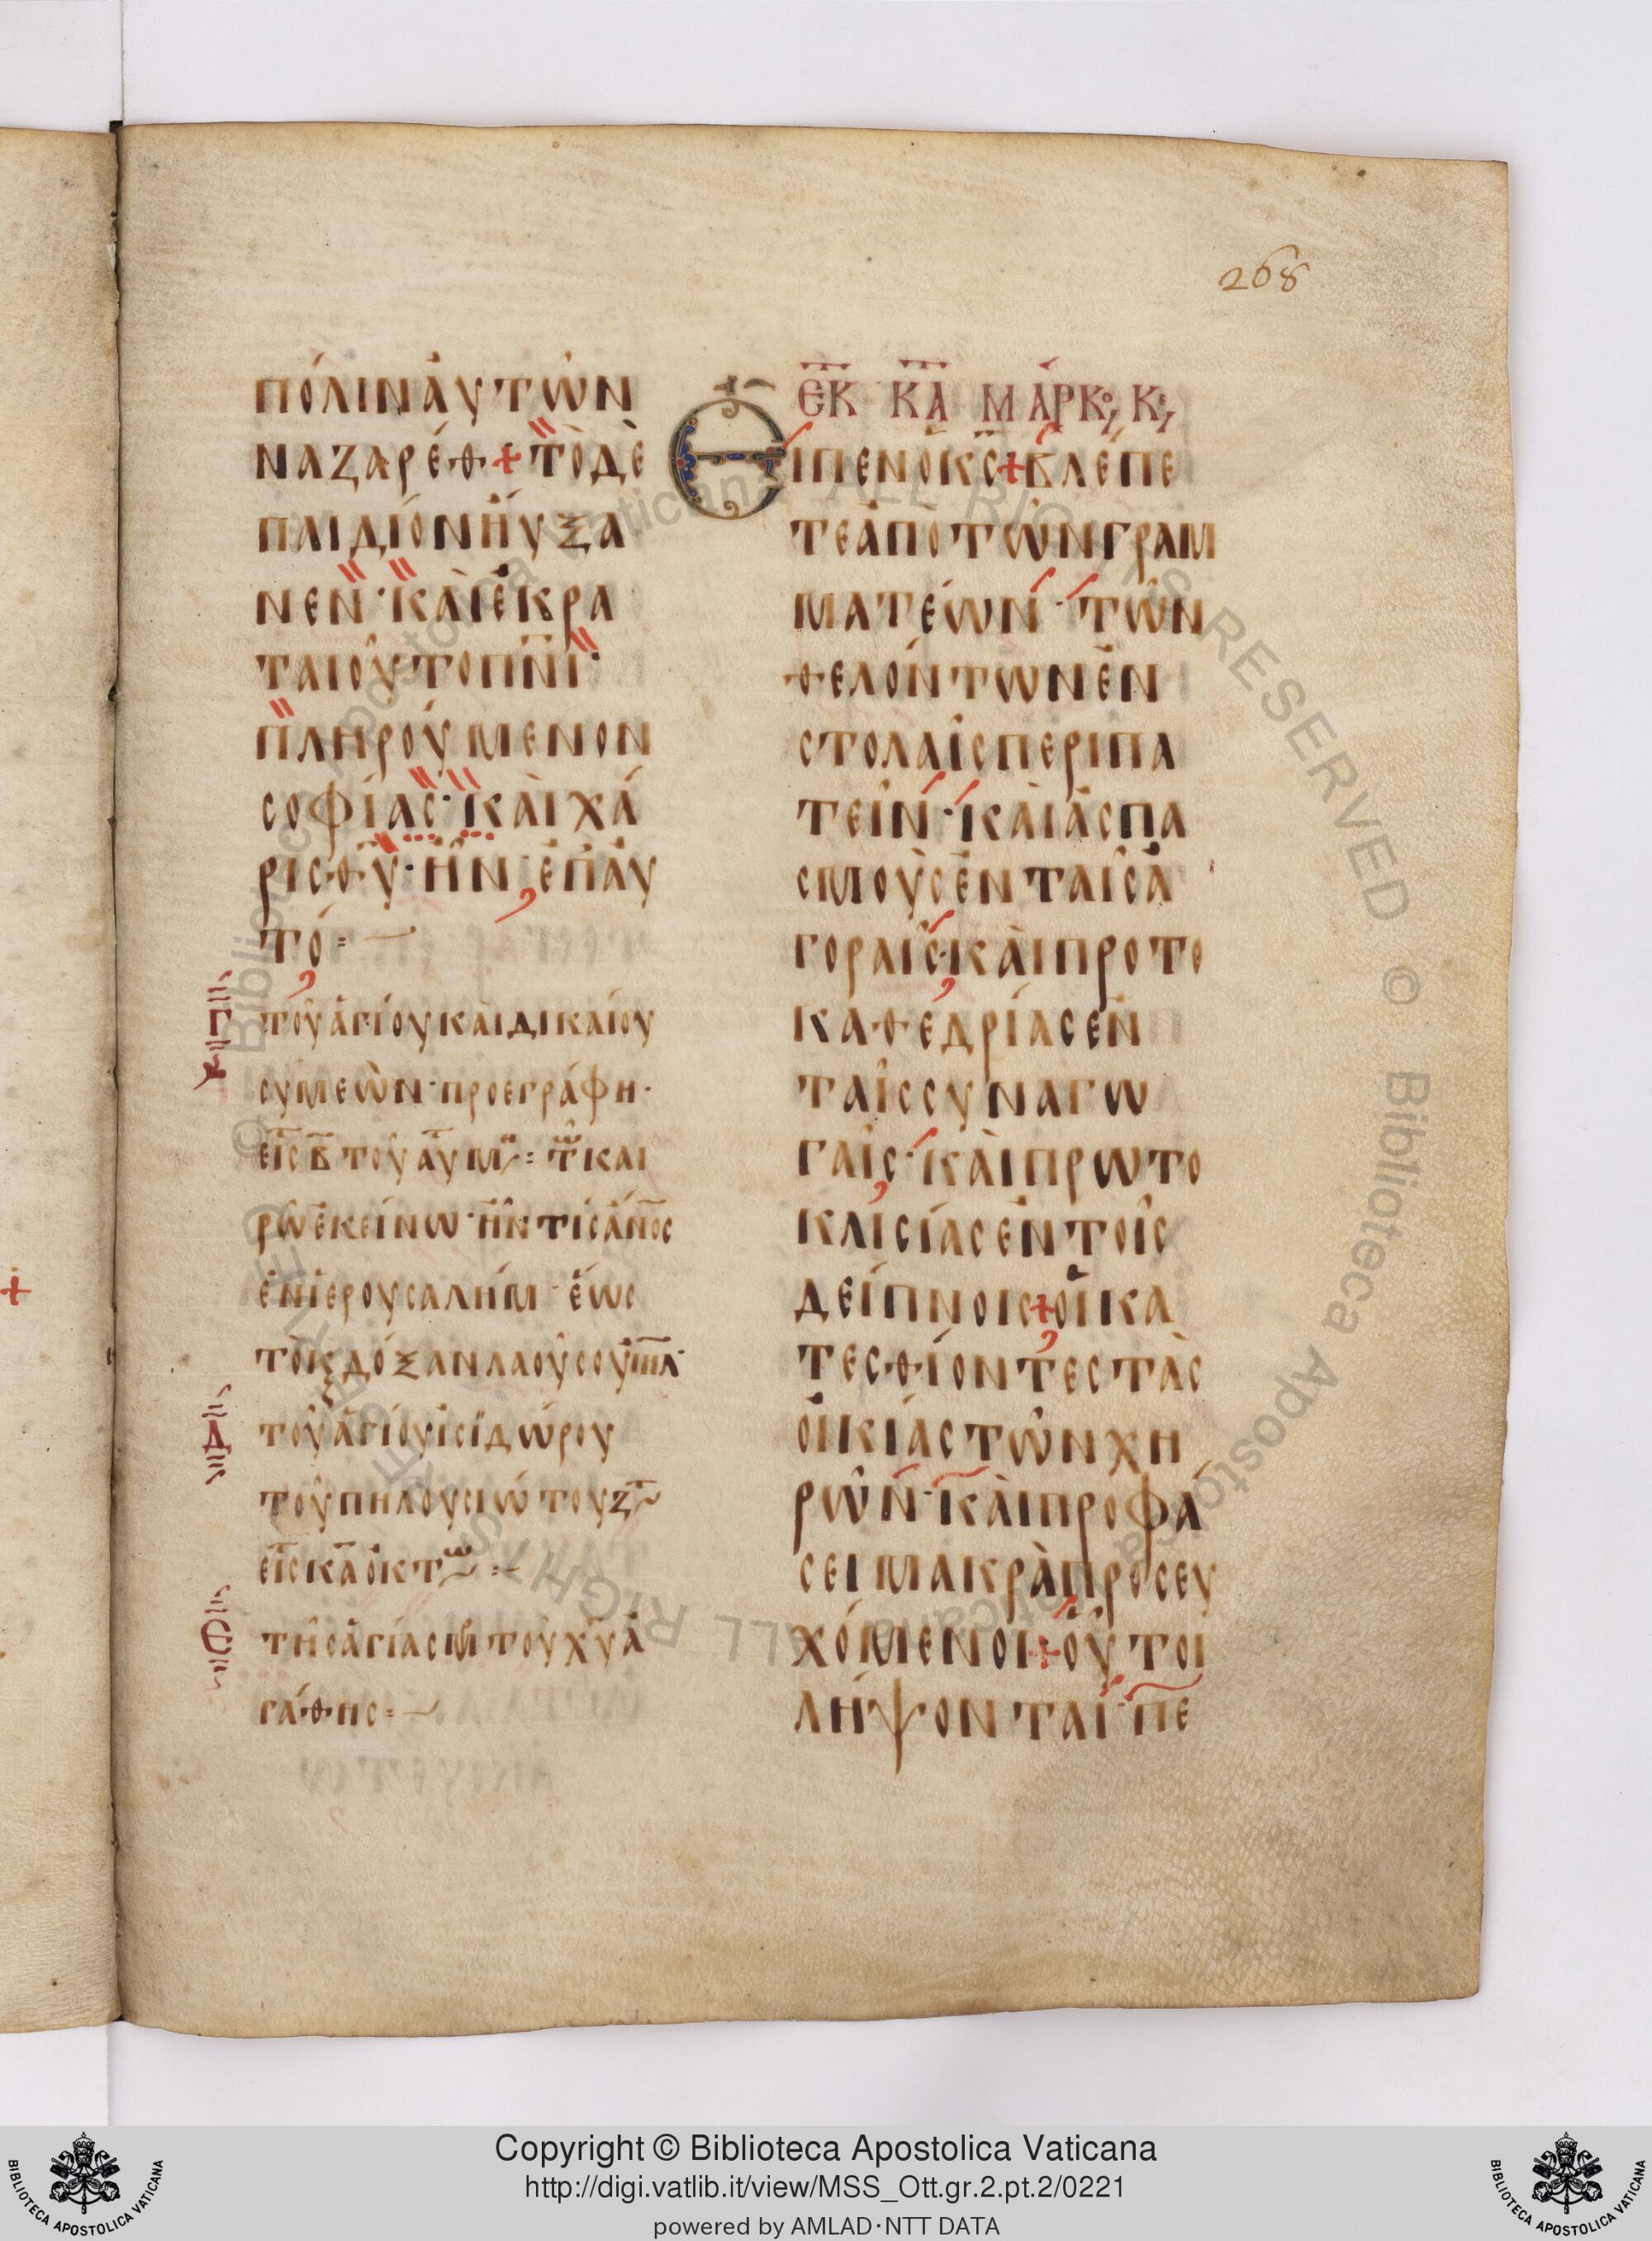 268
πόλιν ἀυτῶν
ναζαρέθ + τὸ δὲ
παιδίον ἠύξα
νεν · καὶ ἐκρα
ταιοῦτο π̅ν̅ι̅ ·
πληρούμενον
σοφίας · καὶ χά
ρις θ̅υ̅ · ἦν ἐπ' ἀυ
τό =
Γ τοῦ ἁγίου καὶ δικαίου
συμεὼν · προεγράφη ·
τῶ και
ρῶ ἐκείνω · ἦν τίς ἀν̅ο̅ς
ἐν ἱερουσαλήμ · ἕως
τὸ κ, δόξαν λαοῦ σου ι̅η̅λ̅ ·
Δ τοῦ ἁγίου ἰσιδώρου
τοῦ πηλουσιώτου ζ
εἰς κ̅α̅ ὀκτω
Ε τῆς ἁγίας μ τοῦ χ̅υ̅ ἀ
γάθης =
ἐκ κ̅α̅ μάρκ, κ,
Εἶπεν ὁ κ̅ς̅ + βλέπε
τε ἀπὸ τῶν γραμ
ματέων · τῶν
θελόντων ἐν
στολαῖς περιπα
τεῖν · καὶ ἀσπα
σμοὺς ἐν ταῖς ἀ
γοραῖς · καὶ προτο
καθεδρίας ἐν
ταῖς συναγω
γαῖς · καὶ πρωτο
κλισίας ἐν τοῖς
δείπνοις + οἳ κα
τεσθίοντες τὰς
οἰκίας τῶν χη
ρῶν · καὶ προφά
σει μακρὰ προσευ
χόμενοι + οὗτοι
λήψονται · πε
+
Copyright © Biblioteca Apostolica Vaticana
http://digi.vatlib.it/view/MSS_Ott.gr.2.pt.2/0221
powered by AMLAD·NTT DATA
BIBLIOTECA APOSTOLICA VATICANA
BIBLIOTECA APOSTOLICA VATICANA